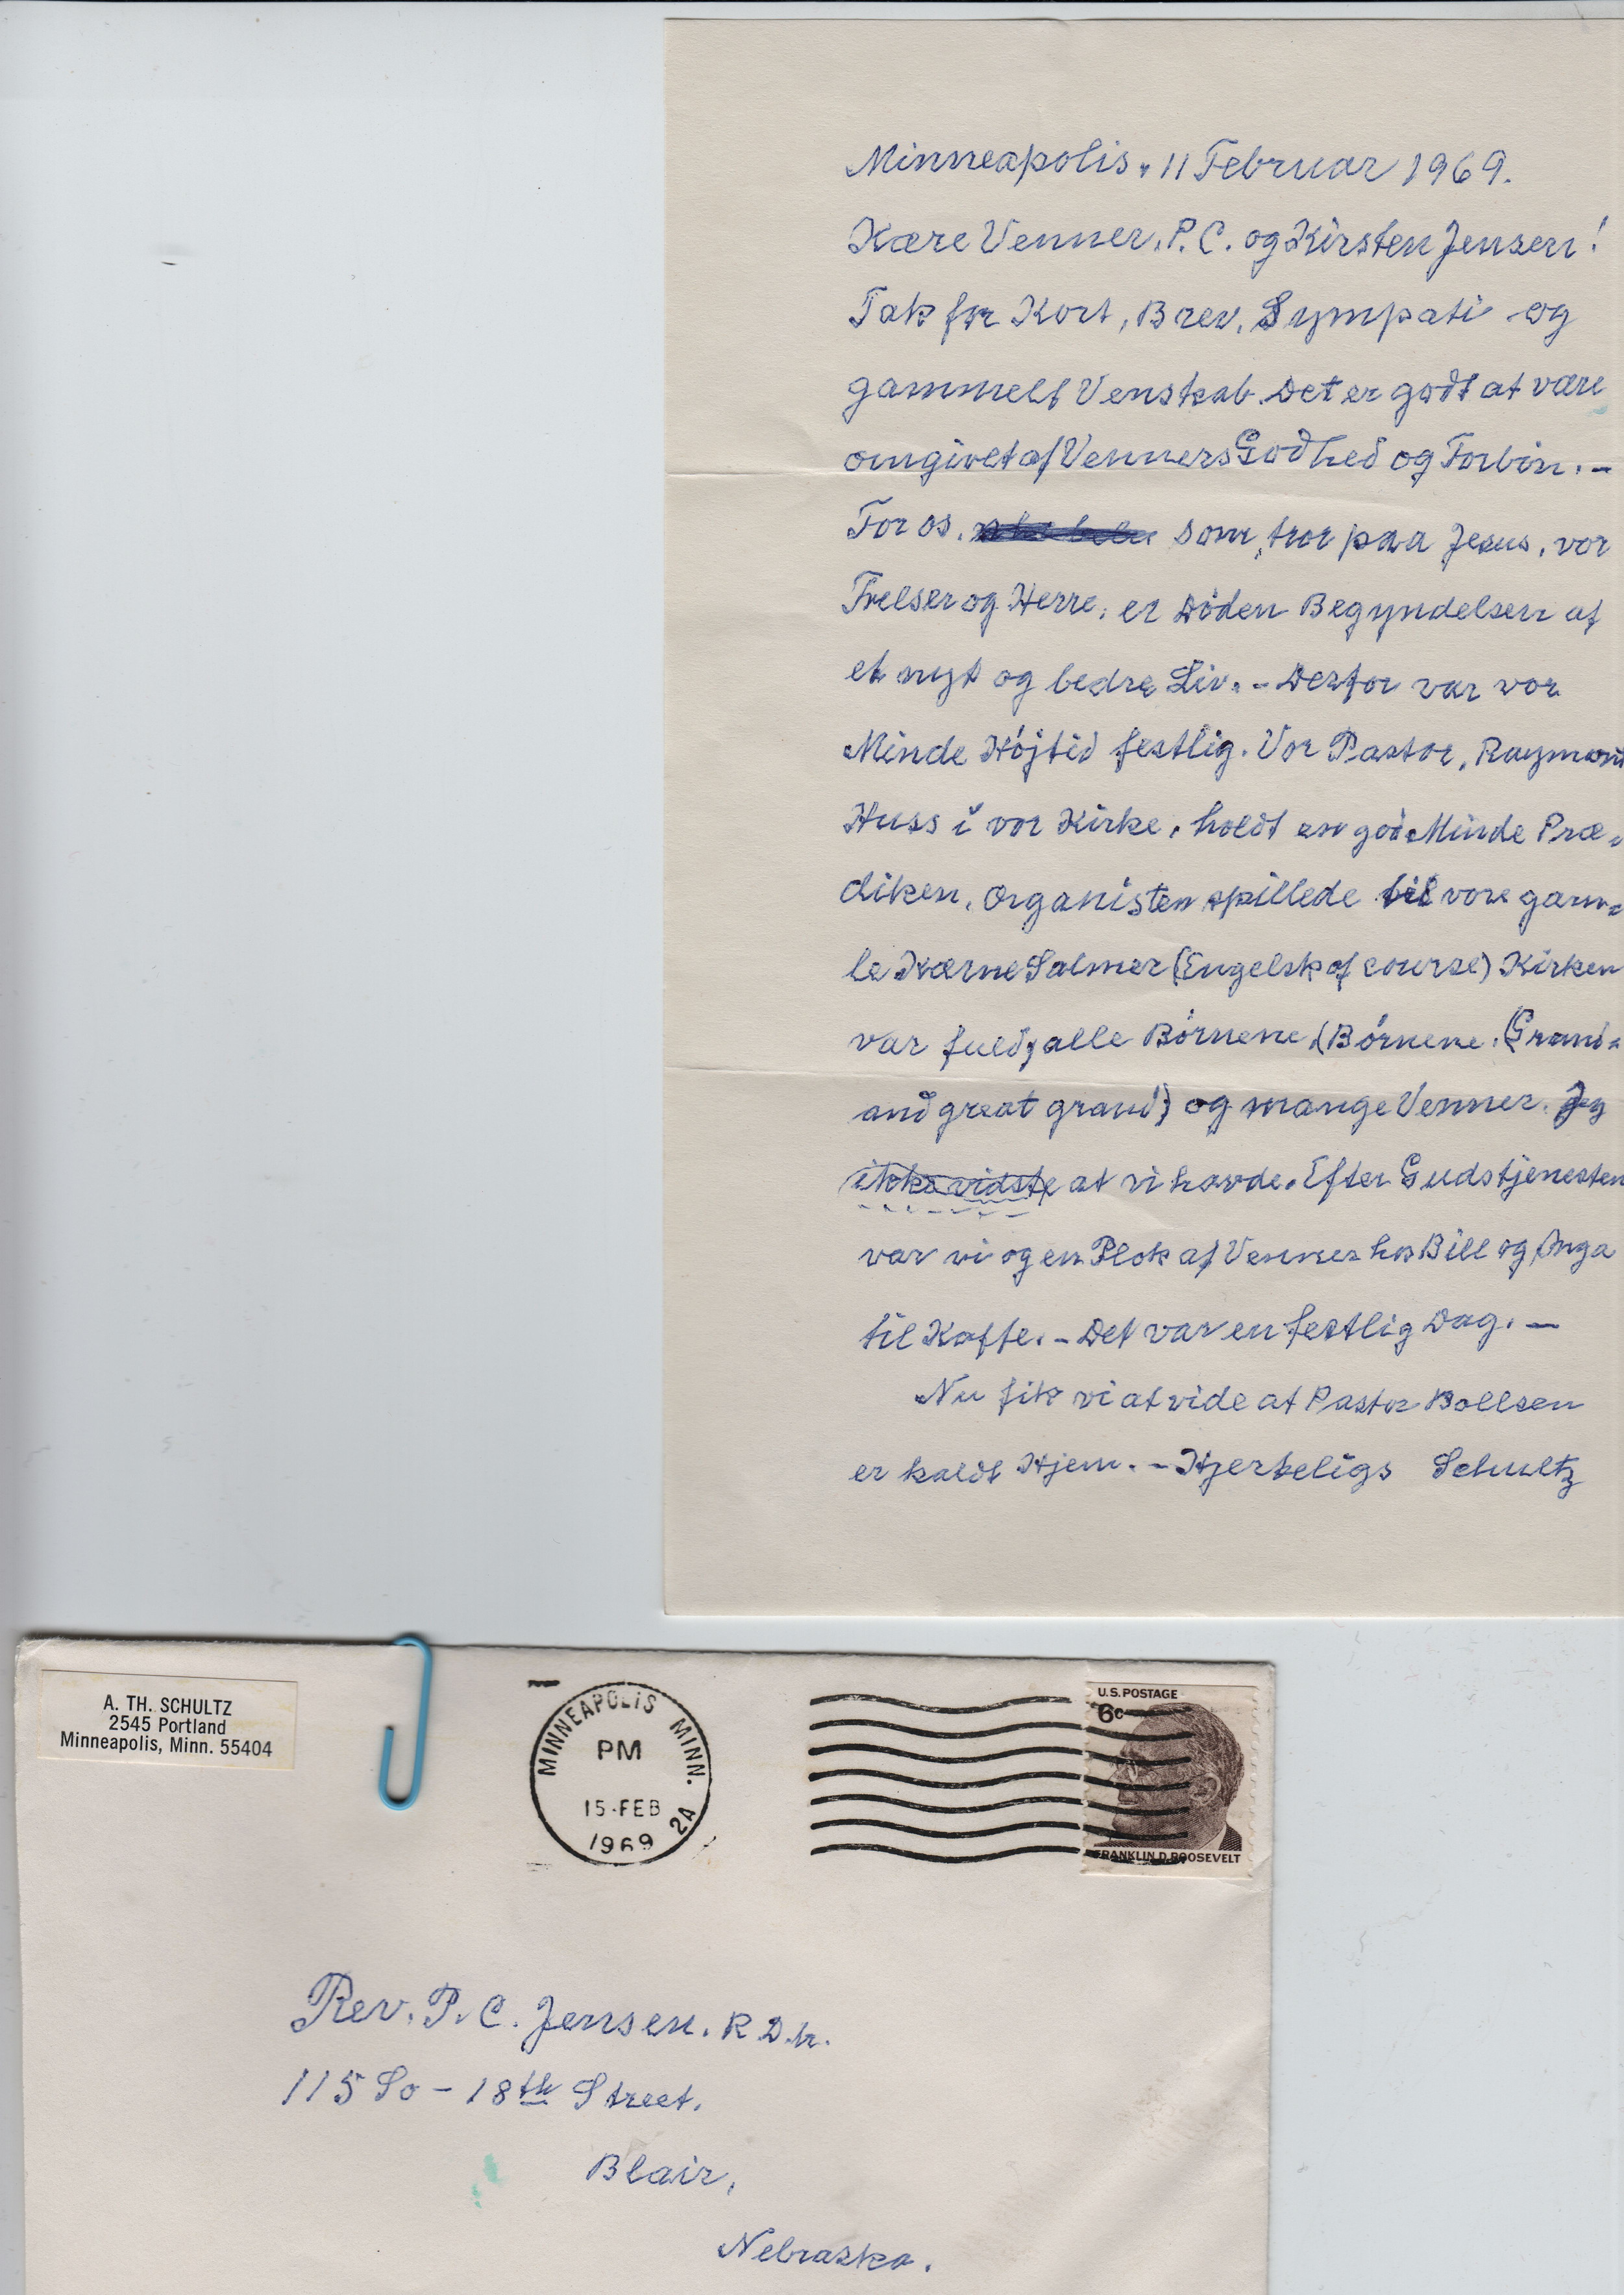 Minneapolis, 11 Februar 1969.
Kære Venner, P. C. og Kirsten Jensen!
Tak for Kort, Brev, Sympati og
gammelt Venskab. Det er godt at være
omgivet af Venners Godhed og Forbøn. -
For os, som tror paa Jesus, vor
Frelser og Herre, er Döden Begyndelsen af
et nyt og bedre Liv. - Derfor var vor
Minde Höjtid festlig. Vor Pastor, Raymond
Huss i vor Kirke, holdt en god Minde Præ-
diken, Organisten spillede vore gam-
le Kærne Salmer (Engelsk of course) Kirken
var fuld, alle Börnene, (Börnene, (Grand-
and great grand) og mange Venner. Jeg
ikke vidste at vi havde. Efter Gudstjenesten
var vi og en Flok af Venner hos Bill og Inga
til Kaffe. - Det var en festlig Dag. -
Nu fik vi at vide at Pastor Bollsen
er kaldt Hjem. - Hjerteligs Schultz
A. TH. SCHULTZ
2545 Portland
Minneapolis, Minn. 55404
MINNEAPOLIS MINN. 2A
PM
15 FEB
1969
U.S. POSTAGE
6c
FRANKLIN D. ROOSEVELT
Rev. P. C. Jensen. R.
115 So - 18th Street.
Blair,
Nebraska.